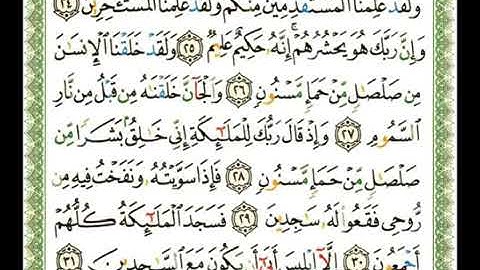 ولقد علمنا المستقدمين منكم ولقد علمنا المستخرين ٢٤
وَإِنَّ رَبَّكَ هُوَ يَحْشُرُهُمْ إِنَّهُ حَكِيمٌ عَلِيمٌ ٢٥ وَلَقَدْ خَلَقْنَا الْإِنسَانَ
مِن صَلْصَالٍ مِّنْ حَمَإٍ مَّسْنُونٍ ٢٦ وَالْجَانَّ خَلَقْنَاهُ مِن قَبْلُ مِن نَّارِ
السَّمُومِ ٢٧ وَإِذْ قَالَ رَبُّكَ لِلْمَلَائِكَةِ إِنِّي خَالِقٌ بَشَرًا مِّن
صَلْصَالٍ مِّنْ حَمَإٍ مَّسْنُونٍ ٢٨ فَإِذَا سَوَّيْتُهُ وَنَفَخْتُ فِيهِ مِن
رُّوحِي فَقَعُوا لَهُ سَاجِدِينَ ٢٩ فَسَجَدَ الْمَلَائِكَةُ كُلُّهُمْ
أَجْمَعُونَ ٣٠ إِلَّا إِبْلِيسَ أَبَى أَن يَكُونَ مَعَ السَّاجِدِينَ ٣١